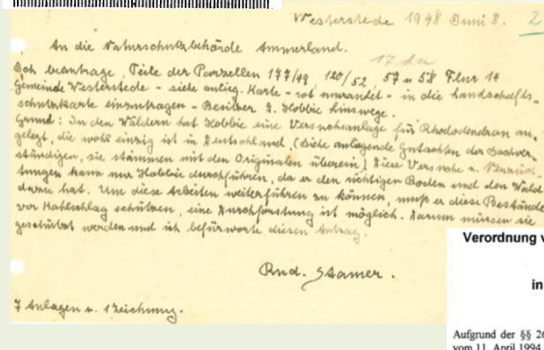 Westerstede 1948 Juni 8. 2
An die Naturschutzbehörde Ammerland.
17 da
Ich beantrage, Teile der Parzellen 177/49, 120/52, 57 u 58 Flur 14
Gemeinde Westerstede - siehe anlieg. Karte - rot umrandet - in die Landschafts-
schutzkarte einzutragen - Besitzer D. Hobbie Linswege.
Grund: In den Wäldern hat Hobbie eine Versuchsanlage für Rhododendron an-
gelegt, die wohl einzig ist in Deutschland. (Siehe anliegende Gutachten der Sachver-
ständigen, sie stimmen mit den Originalen überein) Diese Versuche u. Züch-
tungen kann nur Hobbie durchführen, da er den richtigen Boden und den Wald
dazu hat. Um diese Arbeiten weiterführen zu können, muß er diese Bestände
vor Kahlschlag schützen, eine Durchforstung ist möglich. Darum müssen sie
geschützt werden und ich befürworte diesen Antrag.
Rud. Stamer.
7 Anlagen u. 1 Zeichnung.
Verordnung
in
Aufgrund der §§ 26
vom 11. April 1994